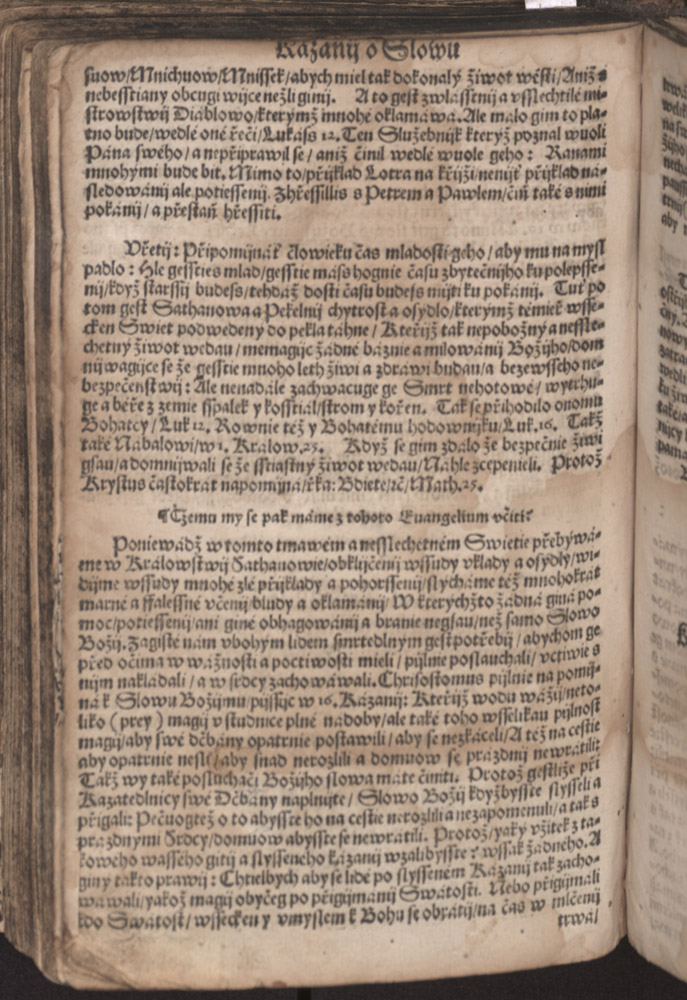 Kázanij o Slowu
suow/Mnichuow/Mnissek/abych miel tak dokonalý žiwot wésti/Aniž s
nebesstiany obcugi wijce nežli ginij. A to gest zwlásstnij a vsslechtilé mi-
strowstwij Diáblowo/kterýmž mnohé oklamáwá. Ale málo gim to pla-
tno bude/wedlé oné řeči/Lukáss 12. Ten Služebnijk kterýž poznal wuoli
Pána swého/a nepřiprawil se/aniž činil wedlé wuole geho: Ranami
mnohými bude bit. Mimo to/přijklad Lotra na křijži/nenijť přijklad ná-
sledowánij ale potiessenij. Zhřessillis s Petrem a Pawlem/čiň také s nimi
pokánij/a přestaň hřessiti.
Vřetij: Připomijnáť člowieku čas mladosti geho/aby mu na mysl
padlo: Hle gessties mlád/gesstie máss hognie času zbytečnijho ku polepsse-
nij/když starssij budess/tehdáž dosti času budess mijti ku pokánij. Tuť po
tom gest Sathanowa a Pekelnij chytrost a osydlo/kterýmž témieř wsse-
cken Swiet podwedený do pekla táhne/Kteřijž tak nepobožný a nessle-
chetný žiwot wedau/nemagijc žádné báznie a milowánij Božijho/dom
nijwagijce se že gesstie mnoho leth žiwi a zdrawi budau/a bezewssého ne-
bezpečenstwij: Ale nenadále zachwacuge ge Smrt nehotowé/wytrhu-
ge a béře z zemie sspalek y kosstiál/strom y kořen. Tak se přihodilo onomu
Bohatcy/Luk 12. Rownie též y Bohatému hodownijku/Luk. 16. Takž
také Nábalowi/w 1. Králow. 25. Když se gim zdálo že bezpečnie žiwi
gsau/a domnijwali se že sstiastný žiwot wedau/Náhle zcepenieli. Protož
Krystus častokrát napomijná/řka: Bdiete/ꝛc/Math. 25.
¶ Čemu my se pak máme z tohoto Euangelium včiti?
Poniewádž w tomto tmawém a nesslechetném Swietie přebýwá-
me w Králowstwij Sathanowie/obkljčenij wssudy vklady a osydly/wi-
dijme wssudy mnohé zlé přijklady a pohorssenij/slycháme též mnohokrát
marné a ffalessné včenij/bludy a oklamánij/W kterýchžto žádná giná po-
moc/potiessenij/ani giné obhagowánij a bránie negsau/než samo Slowo
Božij. Zagisté nám vbohým lidem smrtedlným gest potřebij/abychom ge
před očima w wážnosti a poctiwosti mieli/pijlnie poslauchali/vctiwie s
nijm nakládali/a w srdcy zachowáwali. Chrisostomus pijlnie na pomij-
ná k Slowu Božijmu/pijssijc w 16. Kázanij: Kteřijž wodu wážij/neto-
liko (prey) magij v studnice plné nádoby/ale také toho wsselikau pijlnost
magij/aby swé dčbány opatrnie postawili/aby se nezkáceli/A též na cestie
aby opatrnie nesli/aby snad nerozlili a domuow se prázdnij newrátili:
Takž wy také posluchači Božijho slowa máte činiti. Protož gestliže při
Kazatedlnicy swé Dčbány naplnijte/Slowo Božij kdyžbysste slysseli a
přigali: Pečugtež o to abysste ho na cestie nerozlili a nezapomenuli/a tak s
prázdnymi Srdcy/domuow abysste se newrátili. Protož/yaký vžitek z ta-
kowého wasseho gitij a slysseného kázanij wzalibysste? wssak žádného. A
giny takto prawij: Chtielbych aby se lidé po slyssenem Kázanij tak zacho-
wáwali/yakož magij obyčeg po přigijmanij Swátosti. Nebo přigijmali
kdo Swátost/wssecken y vmyslem k Bohu se obrátij/na čas w mlčenij
trwá/